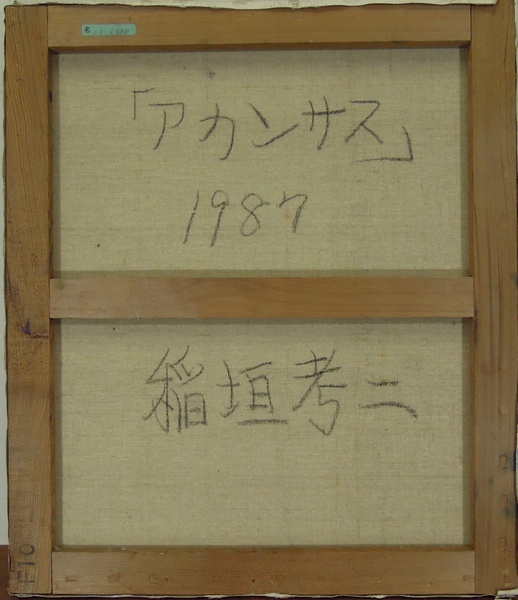 「アカンサス」
1987
稲垣考二
F10